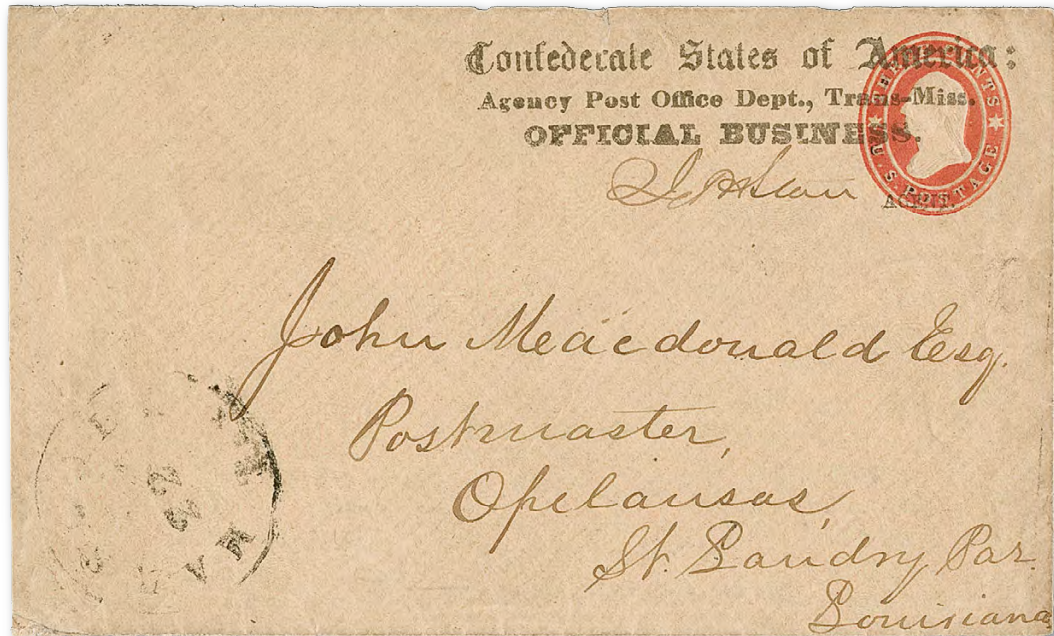 Confederate States of America:
Agency Post Office Dept., Trans-Miss.
OFFICIAL BUSINESS.
AGENT.
U.S. POSTAGE
John Meäcdonald Esq.
Postmaster,
Opelausas,
St. Landry Par.
Louisiana